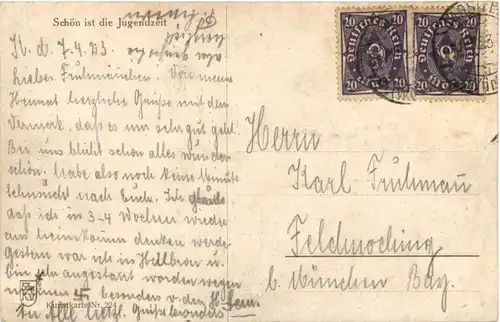 Schön ist die Jugendzeit
St. d. 7.4.23.
Liebes Frühmännchen. Von meiner
Heimat herzliche Grüße mit dem
Vermerk, daß es mir sehr gut geht.
Bei uns blüht schon alles wunder
schön. habe also noch keine Minute
Sehnsucht nach Euch. Ich glaube
daß ich in 3-4 Wochen wieder
ans heimkommen denken werde.
Gestern war ich in Heilbron u.
bin angestaunt worden wegen
meinem 卐 besonders v. den
Kunstkarte Nr. 224
Grüße besonders
20 20 20 20
Deutsches Reich Deutsches Reich
20 20 20 20
Herrn
Karl Fruhmau
Feldmoching
b. München Bay.